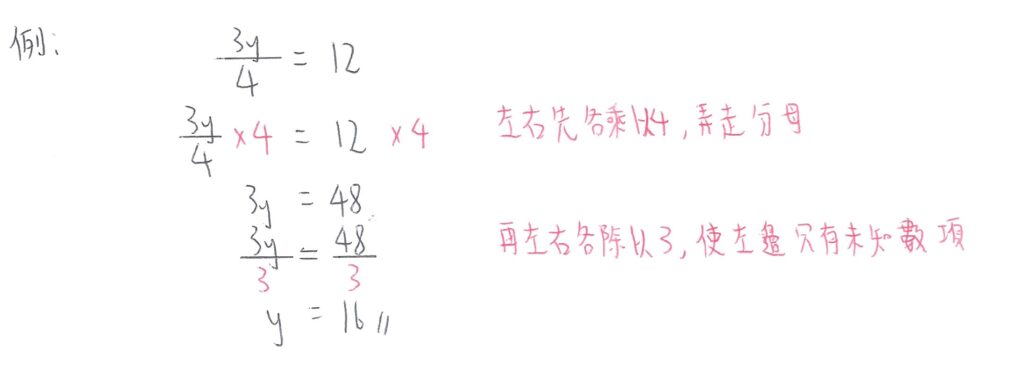 例:
3y/4 = 12
3y/4 ×4 = 12 ×4 左右先各乘以4,弄走分母
3y = 48
3y/3 = 48/3 再左右各除以3,使左邊只有未知數項
y = 16 //